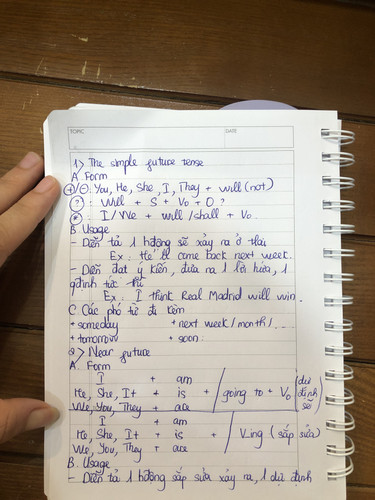 TOPIC DATE
1> The simple future tense
A. Form
(+) (-) You, He, She, I, They + will (not)
(?) : Will + S + Vo + O ?
(*) : I / We + will / shall + Vo
B. Usage
- Diễn tả 1 hđộng sẽ xảy ra ở tlai
Ex : He'll come back next week.
- Diễn đạt ý kiến, đưa ra 1 lời hứa, 1
qđịnh tức thì
Ex : I think Real Madrid will win.
C. Các phó từ đi kèm
+ someday + next week / month / ...
+ tomorrow + soon
2> Near future
A. Form
I + am
He, She, It + is + / going to + Vo (dự định sẽ)
We, You, They + are
I + am
He, She, It + is + / V-ing (sắp sửa)
We, You, They + are
B. Usage
- Diễn tả 1 hđộng sắp sửa xảy ra, 1 dự định